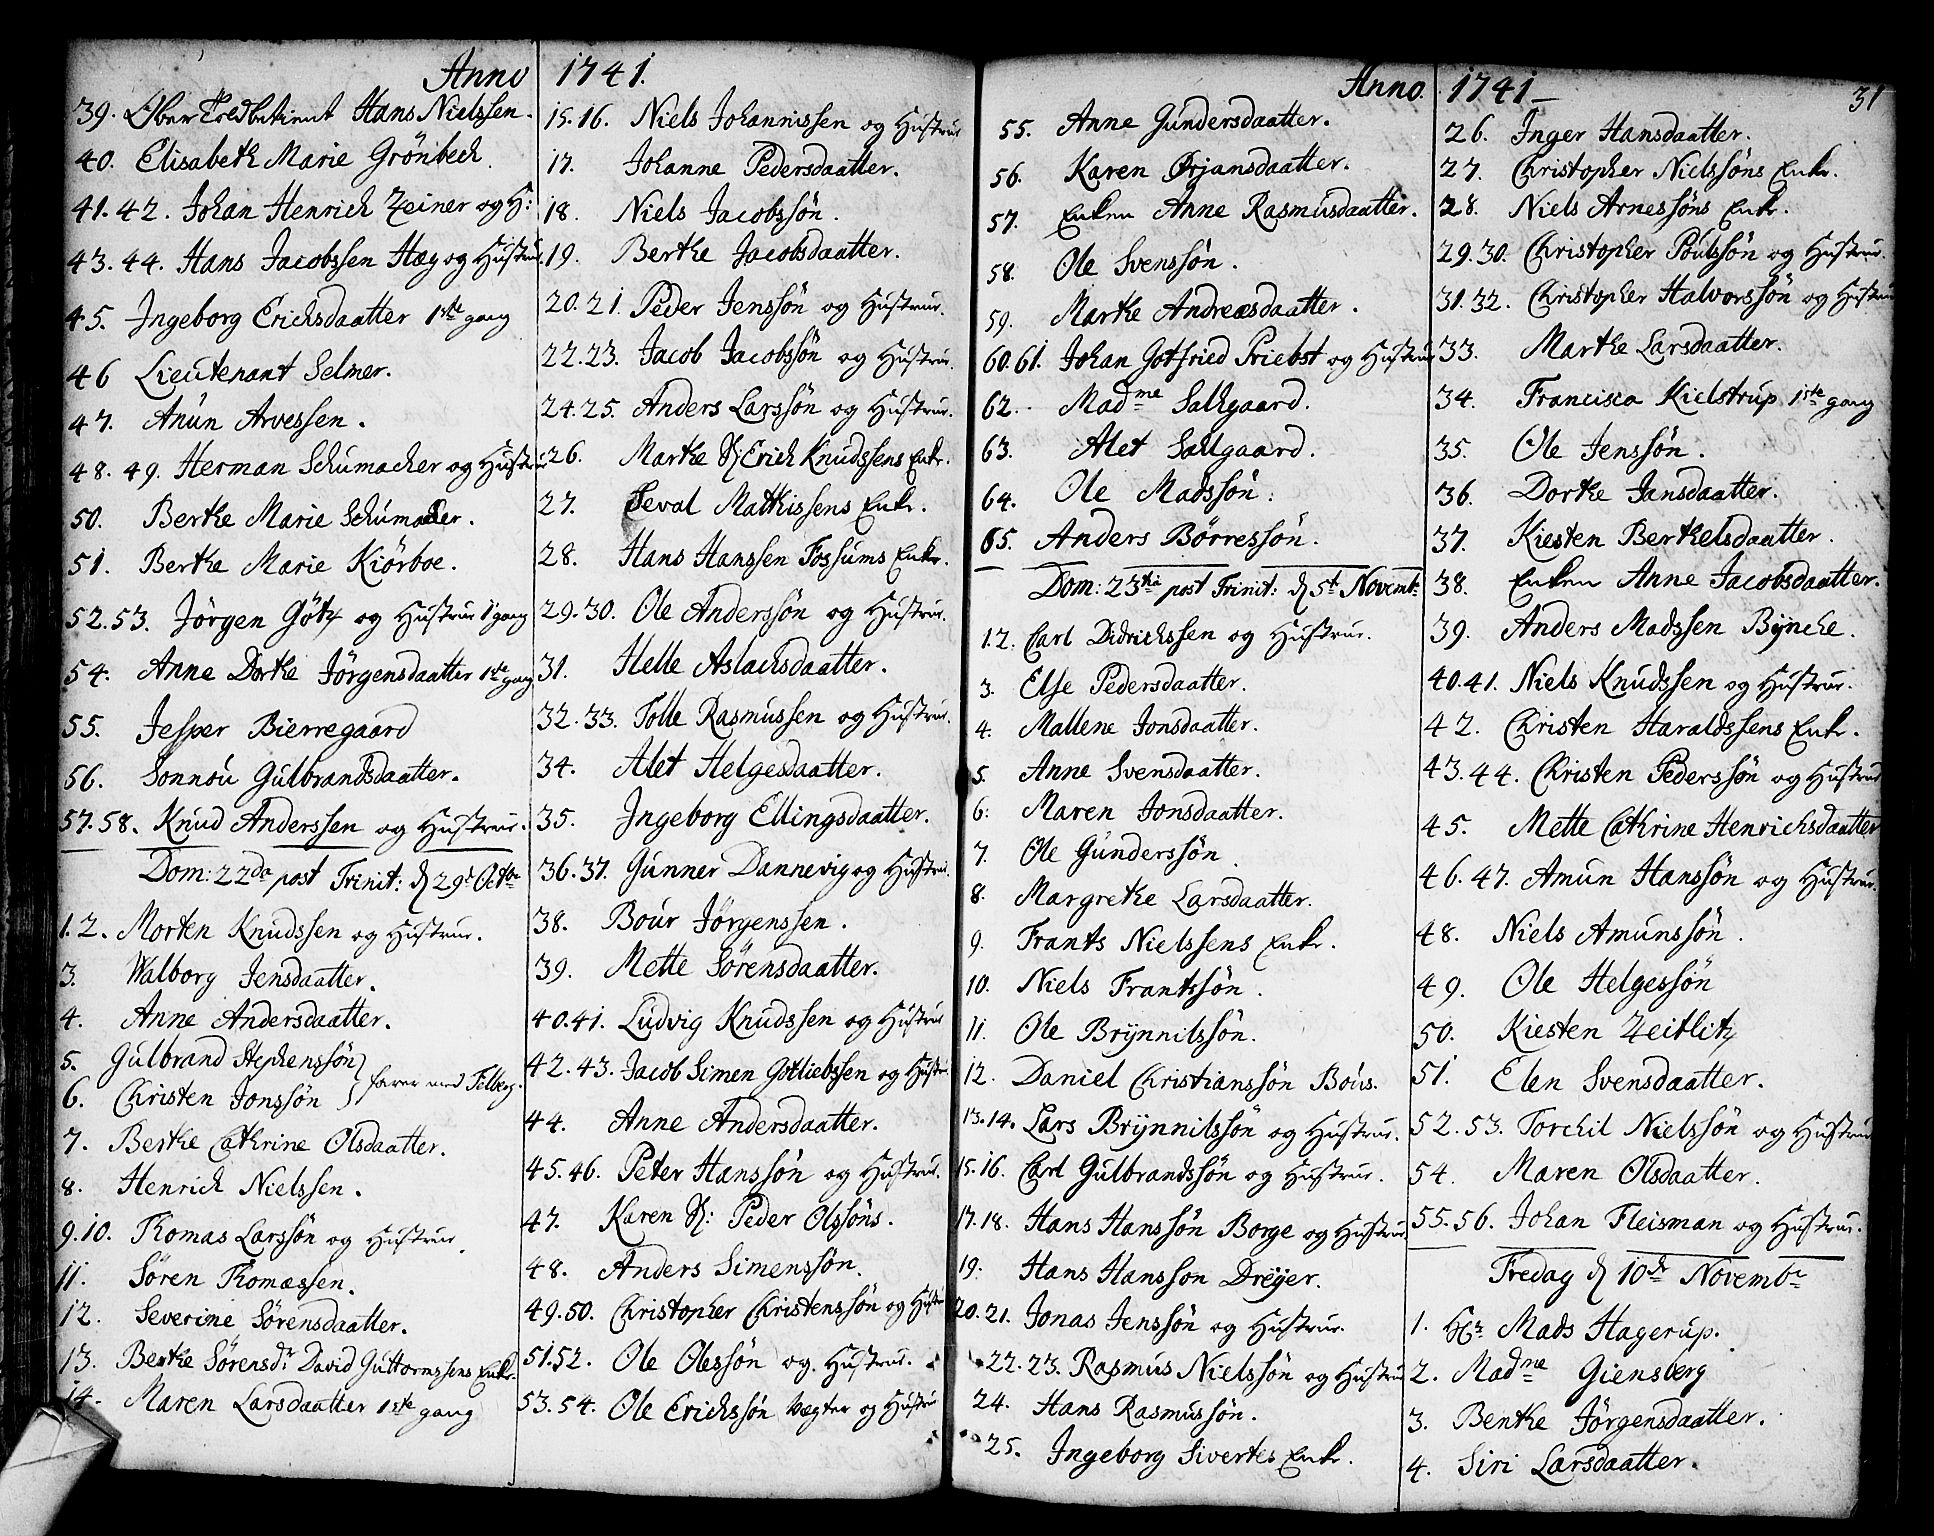 Anno 1741.
39. Ober Toldbetient Hans Nielssen.
40. Elisabeth Marie Grönbech.
41. 42. Johan Henrich Zeiner og H:
43. 44. Hans Jacobssen Hæg og Hustru.
45. Ingeborg Erichsdaatter 1ste gang
46 Lieutenant Selmer.
47. Anün Arvessen.
48. 49. Herman Schumacher og Hustru
50. Berthe Marie Schumacher.
51. Berthe Marie Kiörboe.
52. 53. Jörgen Götz og Hustrue 1 gang
54. Anne Dorthe Jörgensdaatter 1ste gang
55. Jesper Bierregaard
56. Sonnou Gulbrandsdaatter.
57. 58. Knud Anderssen og Hustrue.
Dom: 22da post Trinit: d 29d Octbr
1. 2. Morten Knudssen og Hustrue.
3. Walborg Jensdaatter.
4. Anne Andersdaatter.
5. Gulbrand Stephenssön
6. Christen Jonssön } farer med Filberg.
7. Berthe Cathrine Olsdaatter.
8. Henrich Nielssen.
9. 10. Thomas Larssön og Hustrue.
11. Sören Thomæssen.
12. Severine Sörensdaatter.
13. Berthe Sörensdr David Guttormssens Enke.
14. Maren Larsdaatter 1ste gang
15. 16. Niels Johannissen og Hustrue
17. Johanne Pedersdaatter.
18. Niels Jacobssön.
19. Berthe Jacobsdaatter.
20. 21. Peder Jenssön og Hustrue.
22. 23. Jacob Jacobssön og Hustrue.
24. 25. Anders Larssön og Hustrue.
26. Marthe S: Erich Knudssens Enke.
27. Seval Mathissens Enke.
28. Hans Hanssen Fossums Enke.
29. 30. Ole Anderssön og Hustrue.
31. Helle Aslachsdaatter.
32. 33. Tolle Rasmussen og Hustrue.
34. Alet Helgesdaatter.
35. Ingeborg Ellingsdaatter.
36. 37. Gunner Dannevig og Hustrue.
38. Bour Jörgenssen.
39. Mette Sörensdaatter.
40. 41. Ludvig Knudssen og Hustrue
42. 43. Jacob Simen Gotliebssen og Hustru
44. Anne Andersdaatter.
45. 46. Peter Hanssön og Hustrue.
47. Karen S: Peder Olssöns.
48. Anders Simenssön.
49. 50. Christopher Christenssön og Hustru
51. 52. Ole Olessön og Hustrue.
53. 54. Ole Erichssön Vægter og Hustru
Anno. 1741
31
55. Anne Gundersdaatter.
56. Karen Ørjansdaatter.
57. Enken Anne Rasmusdaatter.
58. Ole Svenssön.
59. Marthe Andreæsdaatter.
60. 61. Johan Gotfried Priebst og Hustrue
62. Madme Salhgaard.
63. Alet Sallgaard.
64. Ole Madssön.
65. Anders Börressön.
Dom: 23tia post Trinit: d 5t Novembr
1 2. Carl Didrichssen og Hustrue.
3. Else Pedersdaatter.
4. Mallene Jonsdaatter.
5. Anne Svensdaatter.
6. Maren Jonsdaatter.
7. Ole Gunderssön.
8. Margrethe Larsdaatter.
9. Frants Nielssens Enke.
10. Niels Frantssön.
11. Ole Brÿnnilssön.
12. Daniel Christianssön Bous.
13. 14. Lars Brÿnnilssön og Hustrue.
15. 16. Carl Gulbrandssön og Hustrue.
17. 18. Hans Hanssön Borge og Hustrue.
19. Hans Hansson Dreÿer.
20. 21. Jonas Jenssön og Hustrue.
22. 23. Rasmus Nielssön og Hustrue
24. Hans Rasmussön.
25. Ingeborg Sivertes Enke.
26. Inger Hansdaatter.
27. Christopher Nielssöns Enke.
28. Niels Arnessöns Enke.
29. 30. Christopher Poulssön og Hustrue.
31. 32. Christopher Halvorssön og Hustrue
33. Marthe Larsdaatter.
34. Francisca Kielstrup 1ste gang
35. Ole Jenssön.
36. Dorthe Jansdaatter.
37. Kiesten Berthelsdaatter.
38. Enken Anne Jacobsdaatter.
39. Anders Madssen Bÿnche.
40. 41. Niels Knudssen og Hustrue.
42. Christen Haraldssens Enke.
43. 44. Christen Pederssön og Hustrue
45. Mette Cathrine Henrichsdaatter
46. 47. Amun Hanssön og Hustrue.
48. Niels Amunssön.
49. Ole Helgessön
50. Kiesten Zeitlitz
51. Elen Svensdaatter.
52. 53. Torchil Nielssön og Hustrue
54. Maren Olsdaatter.
55. 56. Johan Fleisman og Hustrue.
Fredag d 10de Novembr
1. Hr Mads Hagerup.
2. Madme Giensberg
3. Benthe Jörgensdaatter.
4. Siri Larsdaatter.